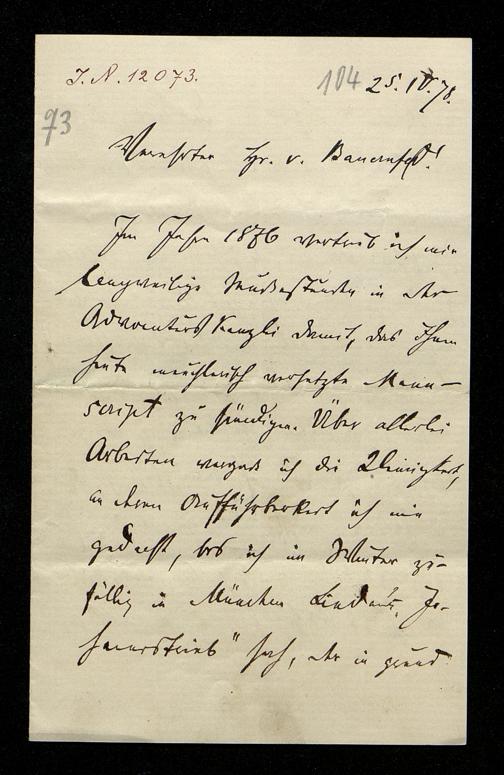 I.N. 12073.
104 25. IV. 78.
93
Verehrter Hr. v. Bauernfeld!
Im Jahre 1876 vertrieb ich mir
langweilige Mußestunden in der
Advocaturs Kanzlei damit, das Ihnen
heute meuchlerisch versetzte Manu-
script zu sündigen. Über allerlei
Arbeiten vergaß ich die Kleinigkeit,
an deren Aufführbarkeit ich nie
gedacht, bis ich im Winter zu-
fällig in München Lindau's „Jo-
hannistrieb" sah, der in